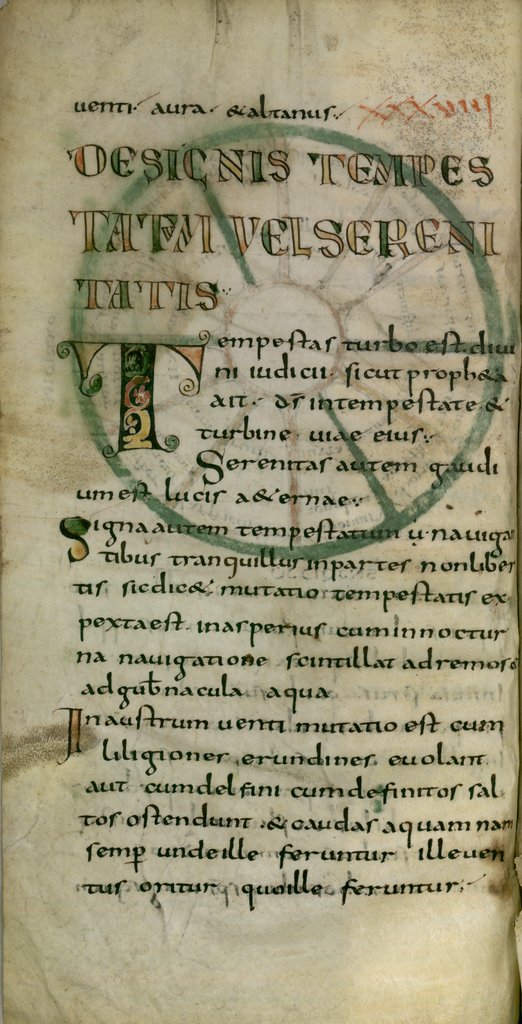 uenti· aura· & altanus·, XXXVIII
DE SIGNIS TEMPES
TATEM VEL SERENI
TATIS·
Tempestas turbo est· diui
ni iudicii· sicut proph&a
ait· d̅s̅ in tempestate &
turbine· uiae eius·,
Serenitas autem gaudi
um est lucis a&ernae·,
Signa autem tempestatum u· nauiga
tibus tranquillus in partes non liber
tis sic dic&· mutatio tempestatis ex
pexta est· in asperius cum in noctur
na nauigatione scintillat ad remos &
ad gub̅nacula aqua
In austrum uenti mutatio est cum
liligiones erundines euolant
aut cum delfini cum definitos sal
tos ostendunt· & caudas aquam nan
semp̲ unde ille feruntur ille uen
tus oritur quo ille feruntur·,